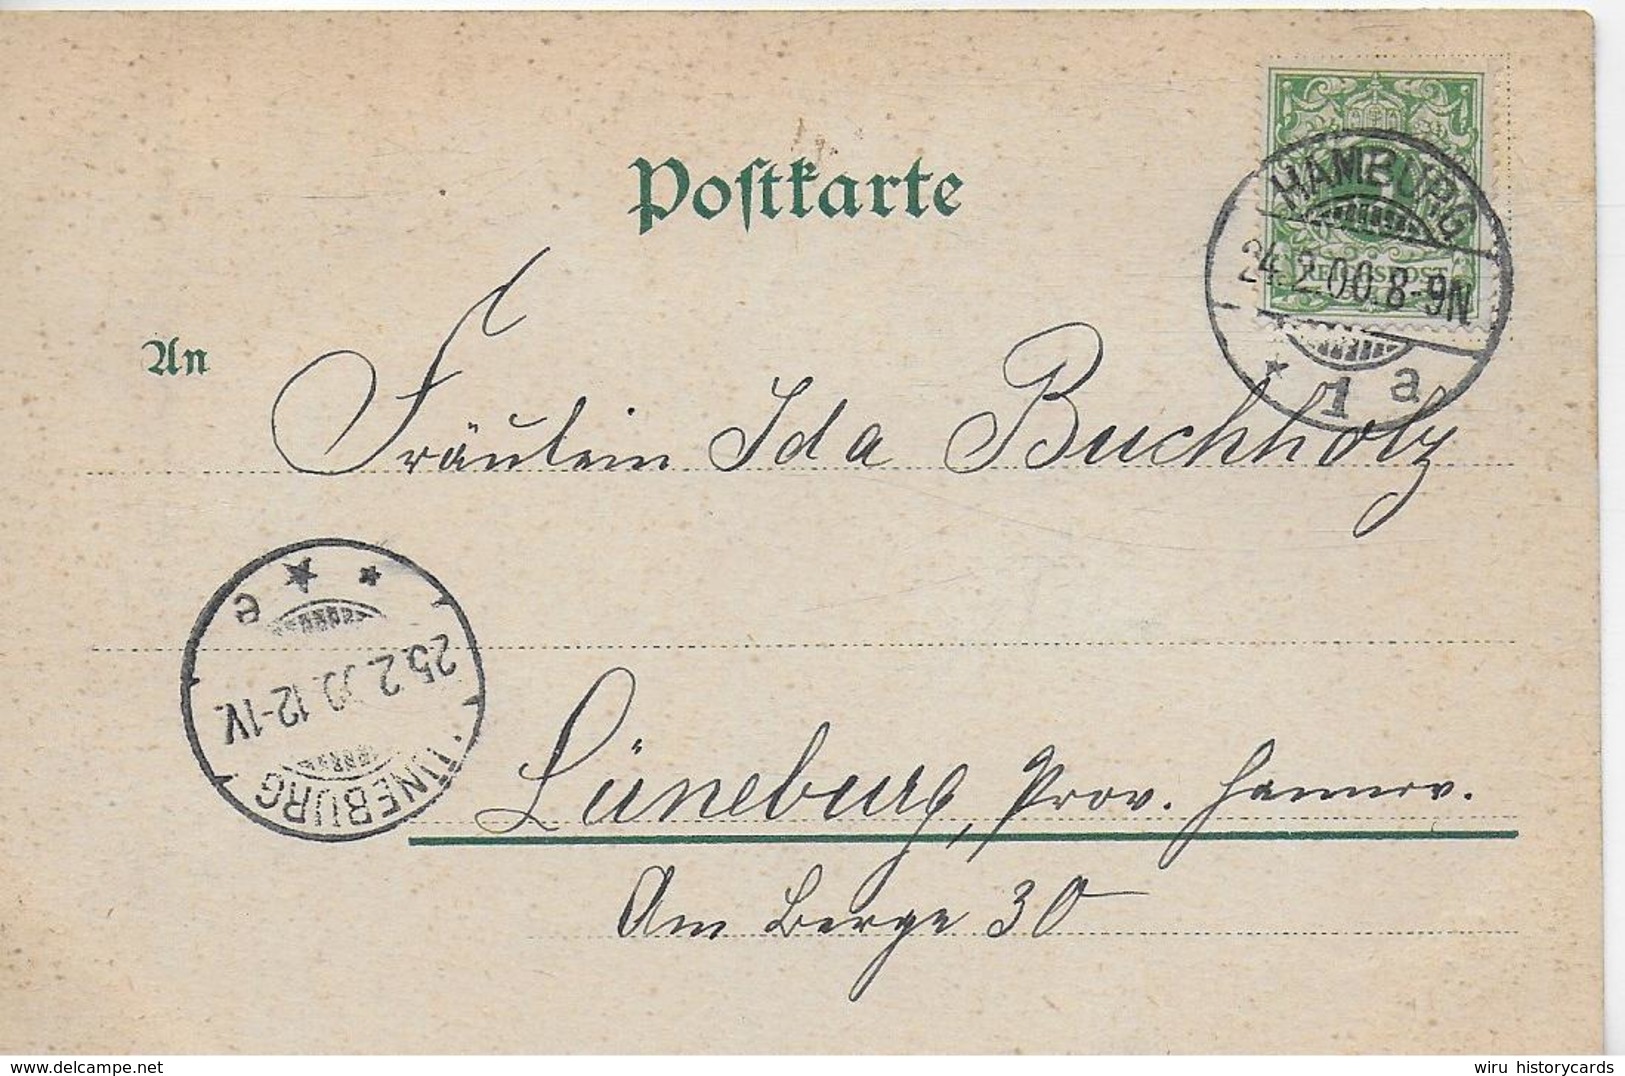 Postkarte
HAMBURG
24.2.00.8-9N
* 1 a
REICHSPOST
An
Fräulein Ida Buchholz
e
25.2.00.12-1V.
LÜNEBURG
Lüneburg, Prov. Hannov.
Am Berge 30
delcampe.net
wiru historycards